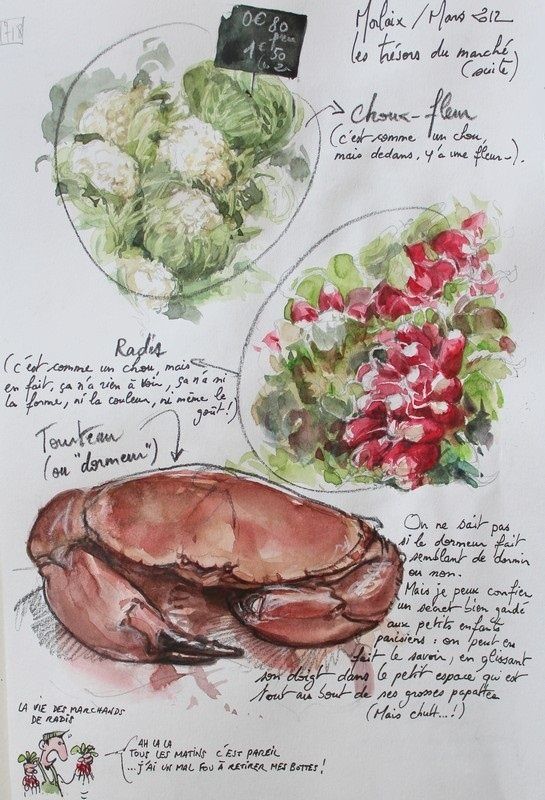 Morlaix / Mars 2012
les trésors du marché
(suite)
718
0€80
pièce
1€50
les 2
Choux-fleur
(c'est comme un chou,
mais dedans, y'a une fleur-).
Radis
(c'est comme un chou, mais
en fait, ça n'a rien à voir, ça n'a ni
la forme, ni la couleur, ni même le
goût!)
Tourteau
(ou "dormeur")
On ne sait pas
si le dormeur fait
semblant de dormir
ou non.
Mais je peux confier
un secret bien gardé
aux petits enfants
parisiens : on peut en
fait le savoir, en glissant
son doigt dans le petit espace qui est
tout au bout de ses grosses papattes
(Mais chutt...!)
LA VIE DES MARCHANDS
DE RADIS
AH LA LA
TOUS LES MATINS C'EST PAREIL
...J'AI UN MAL FOU À RETIRER MES BOTTES!